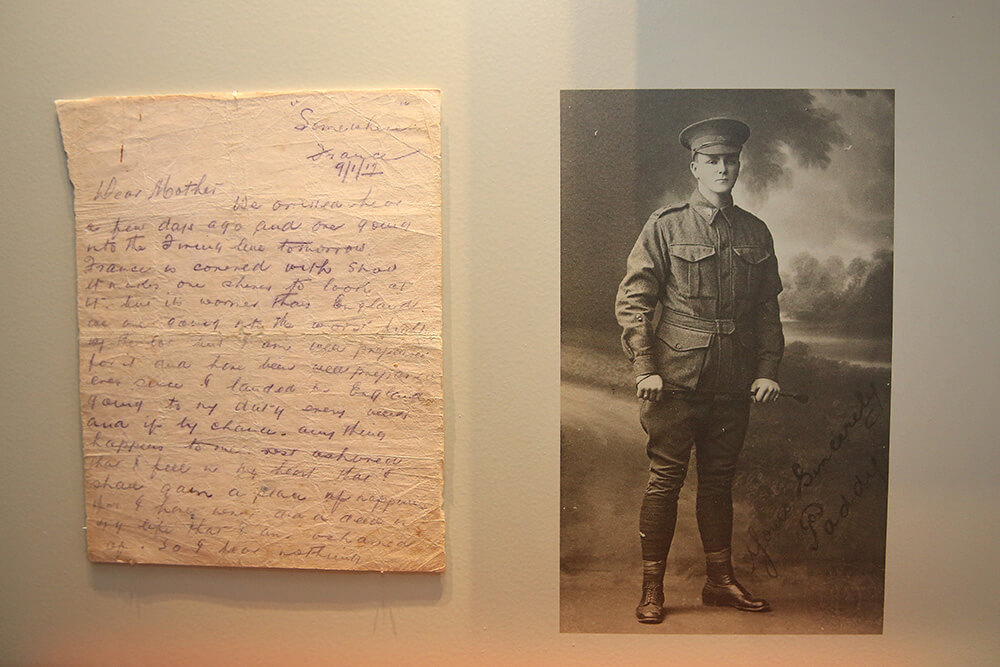 "Somewhere"
France
9/1/17
Dear Mother
We arrived hear
a few days ago and are going
into the Firing line tomorrow
France is covered with snow
it makes one shiver to look at
it but its warmer than England
we are going into the worst part
of the lot but I am well prepared
for it and have been well prepared
ever since I landed in England
going to my duty every week
and if by chance any thing
happens to me rest ashured
that I feel in my heart that I
shall gain a place of happiness
for I have never did a deed in
my life that I am ashamed
of. So I fear nothing
Yours Sincerely
Paddy